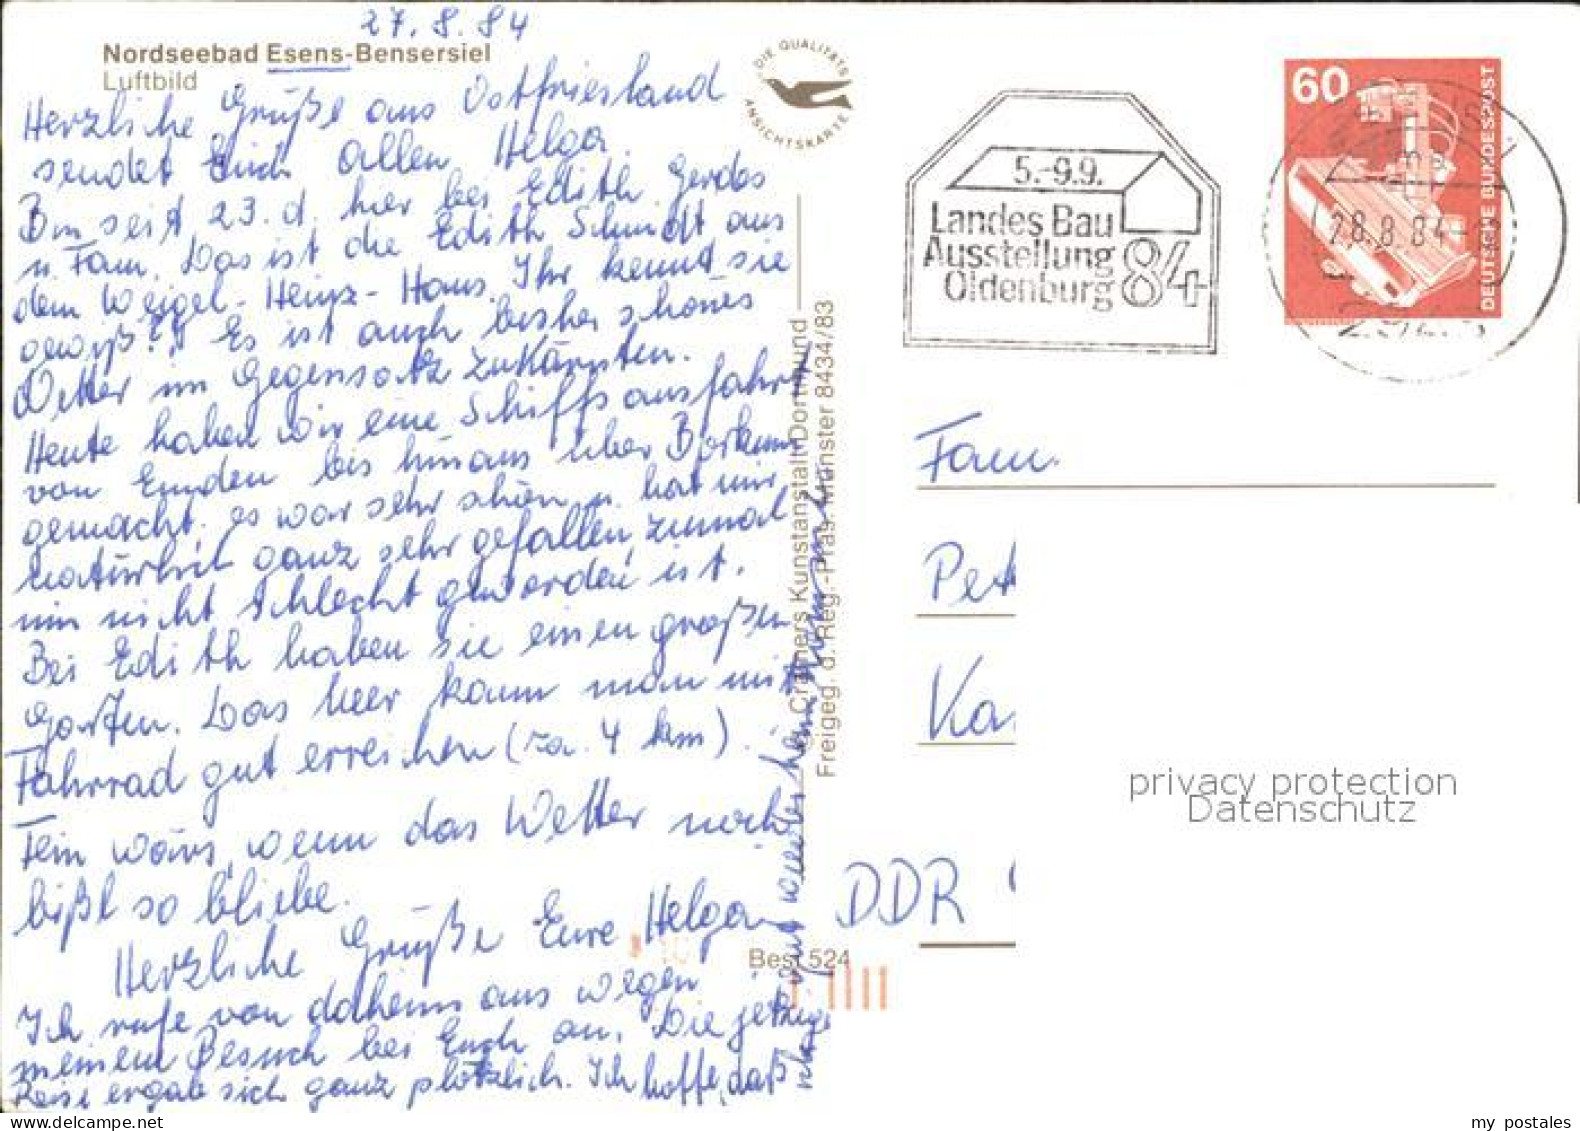 27.8.84
Nordseebad Esens-Bensersiel
Luftbild
Herzliche Grüße aus Ostfriesland
sendet Euch allen Helga.
Bin seit 23. d. hier bei Edith Gerdes
u. Fam. Das ist die Edith Schmidt aus
dem Weigel-Heinz-Haus. Ihr kennt sie
gewiß?! Es ist auch bisher schönes
Wetter im Gegensatz zu Kärnten.
Heute haben wir eine Schiffsausfahrt
von Emden bis hinaus über Borkum
gemacht; es war sehr schön u. hat mir
natürlich ganz sehr gefallen zumal
mir nicht schlecht geworden ist.
Bei Edith haben sie einen großen
Garten. Das Meer kann man mit
Fahrrad gut erreichen (ca. 4 km).
Fein wärs, wenn das Wetter noch
bißl so bliebe.
Herzliche Grüße Eure Helga
Ich rufe von daheim aus wegen
meinem Besuch bei Euch an. Die jetzige
Reise ergab sich ganz plötzlich. Ich hoffe, daß
ich gut wieder heim komme.
DIE QUALITÄTS
ANSICHTSKARTE
© Cramers Kunstanstalt Dortmund
Freigeg. d. Reg.-Präs. Münster 8434/83
Best 524
5.-9.9.
Landes Bau
Ausstellung
Oldenburg 84
60
DEUTSCHE BUNDESPOST
28.8.84
Fam.
Pet
Ka
DDR
privacy protection
Datenschutz
my postales